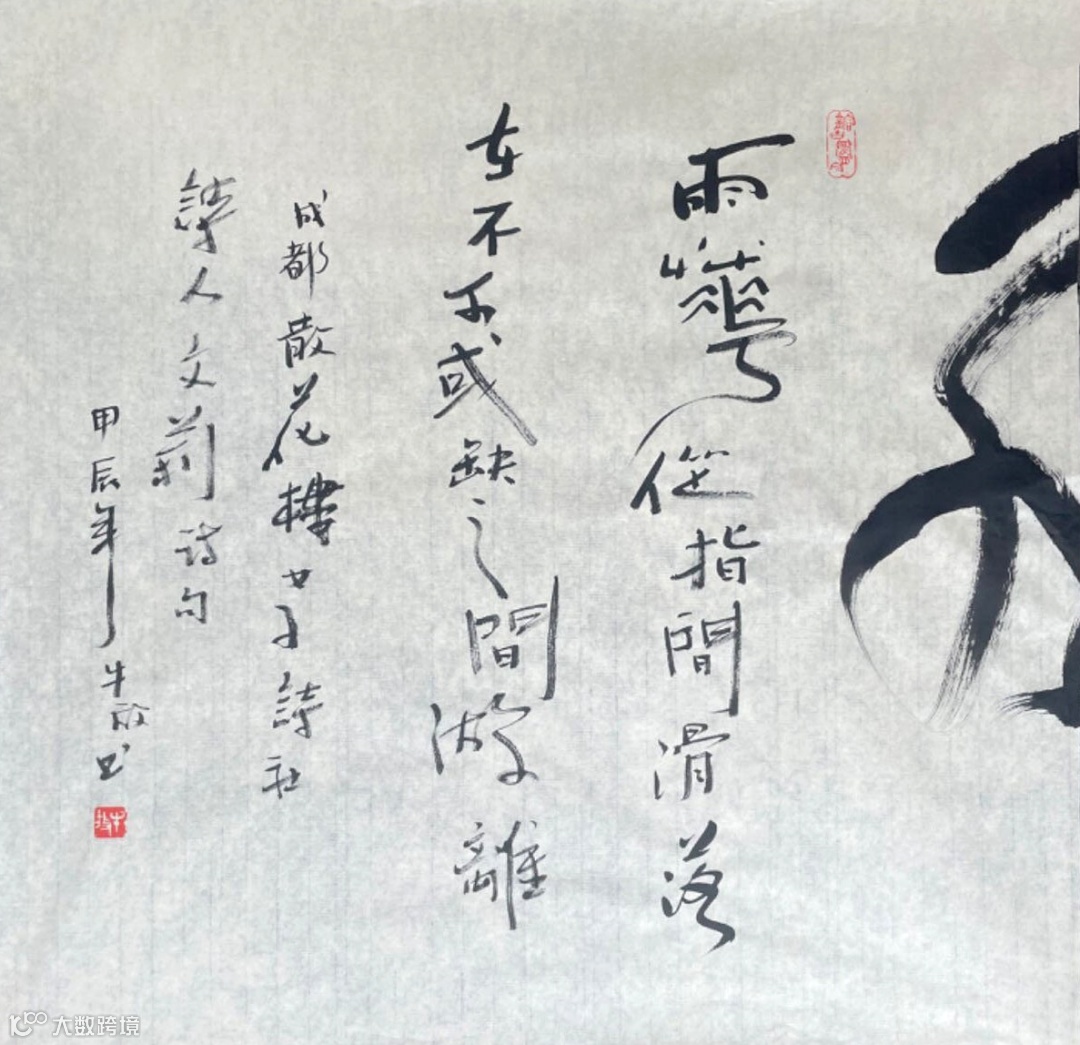 雨華從指間滑落
在不可或缺之間游離
成都散花樓女子詩社
詩人文莉诗句
甲辰年牛放书
大数跨境